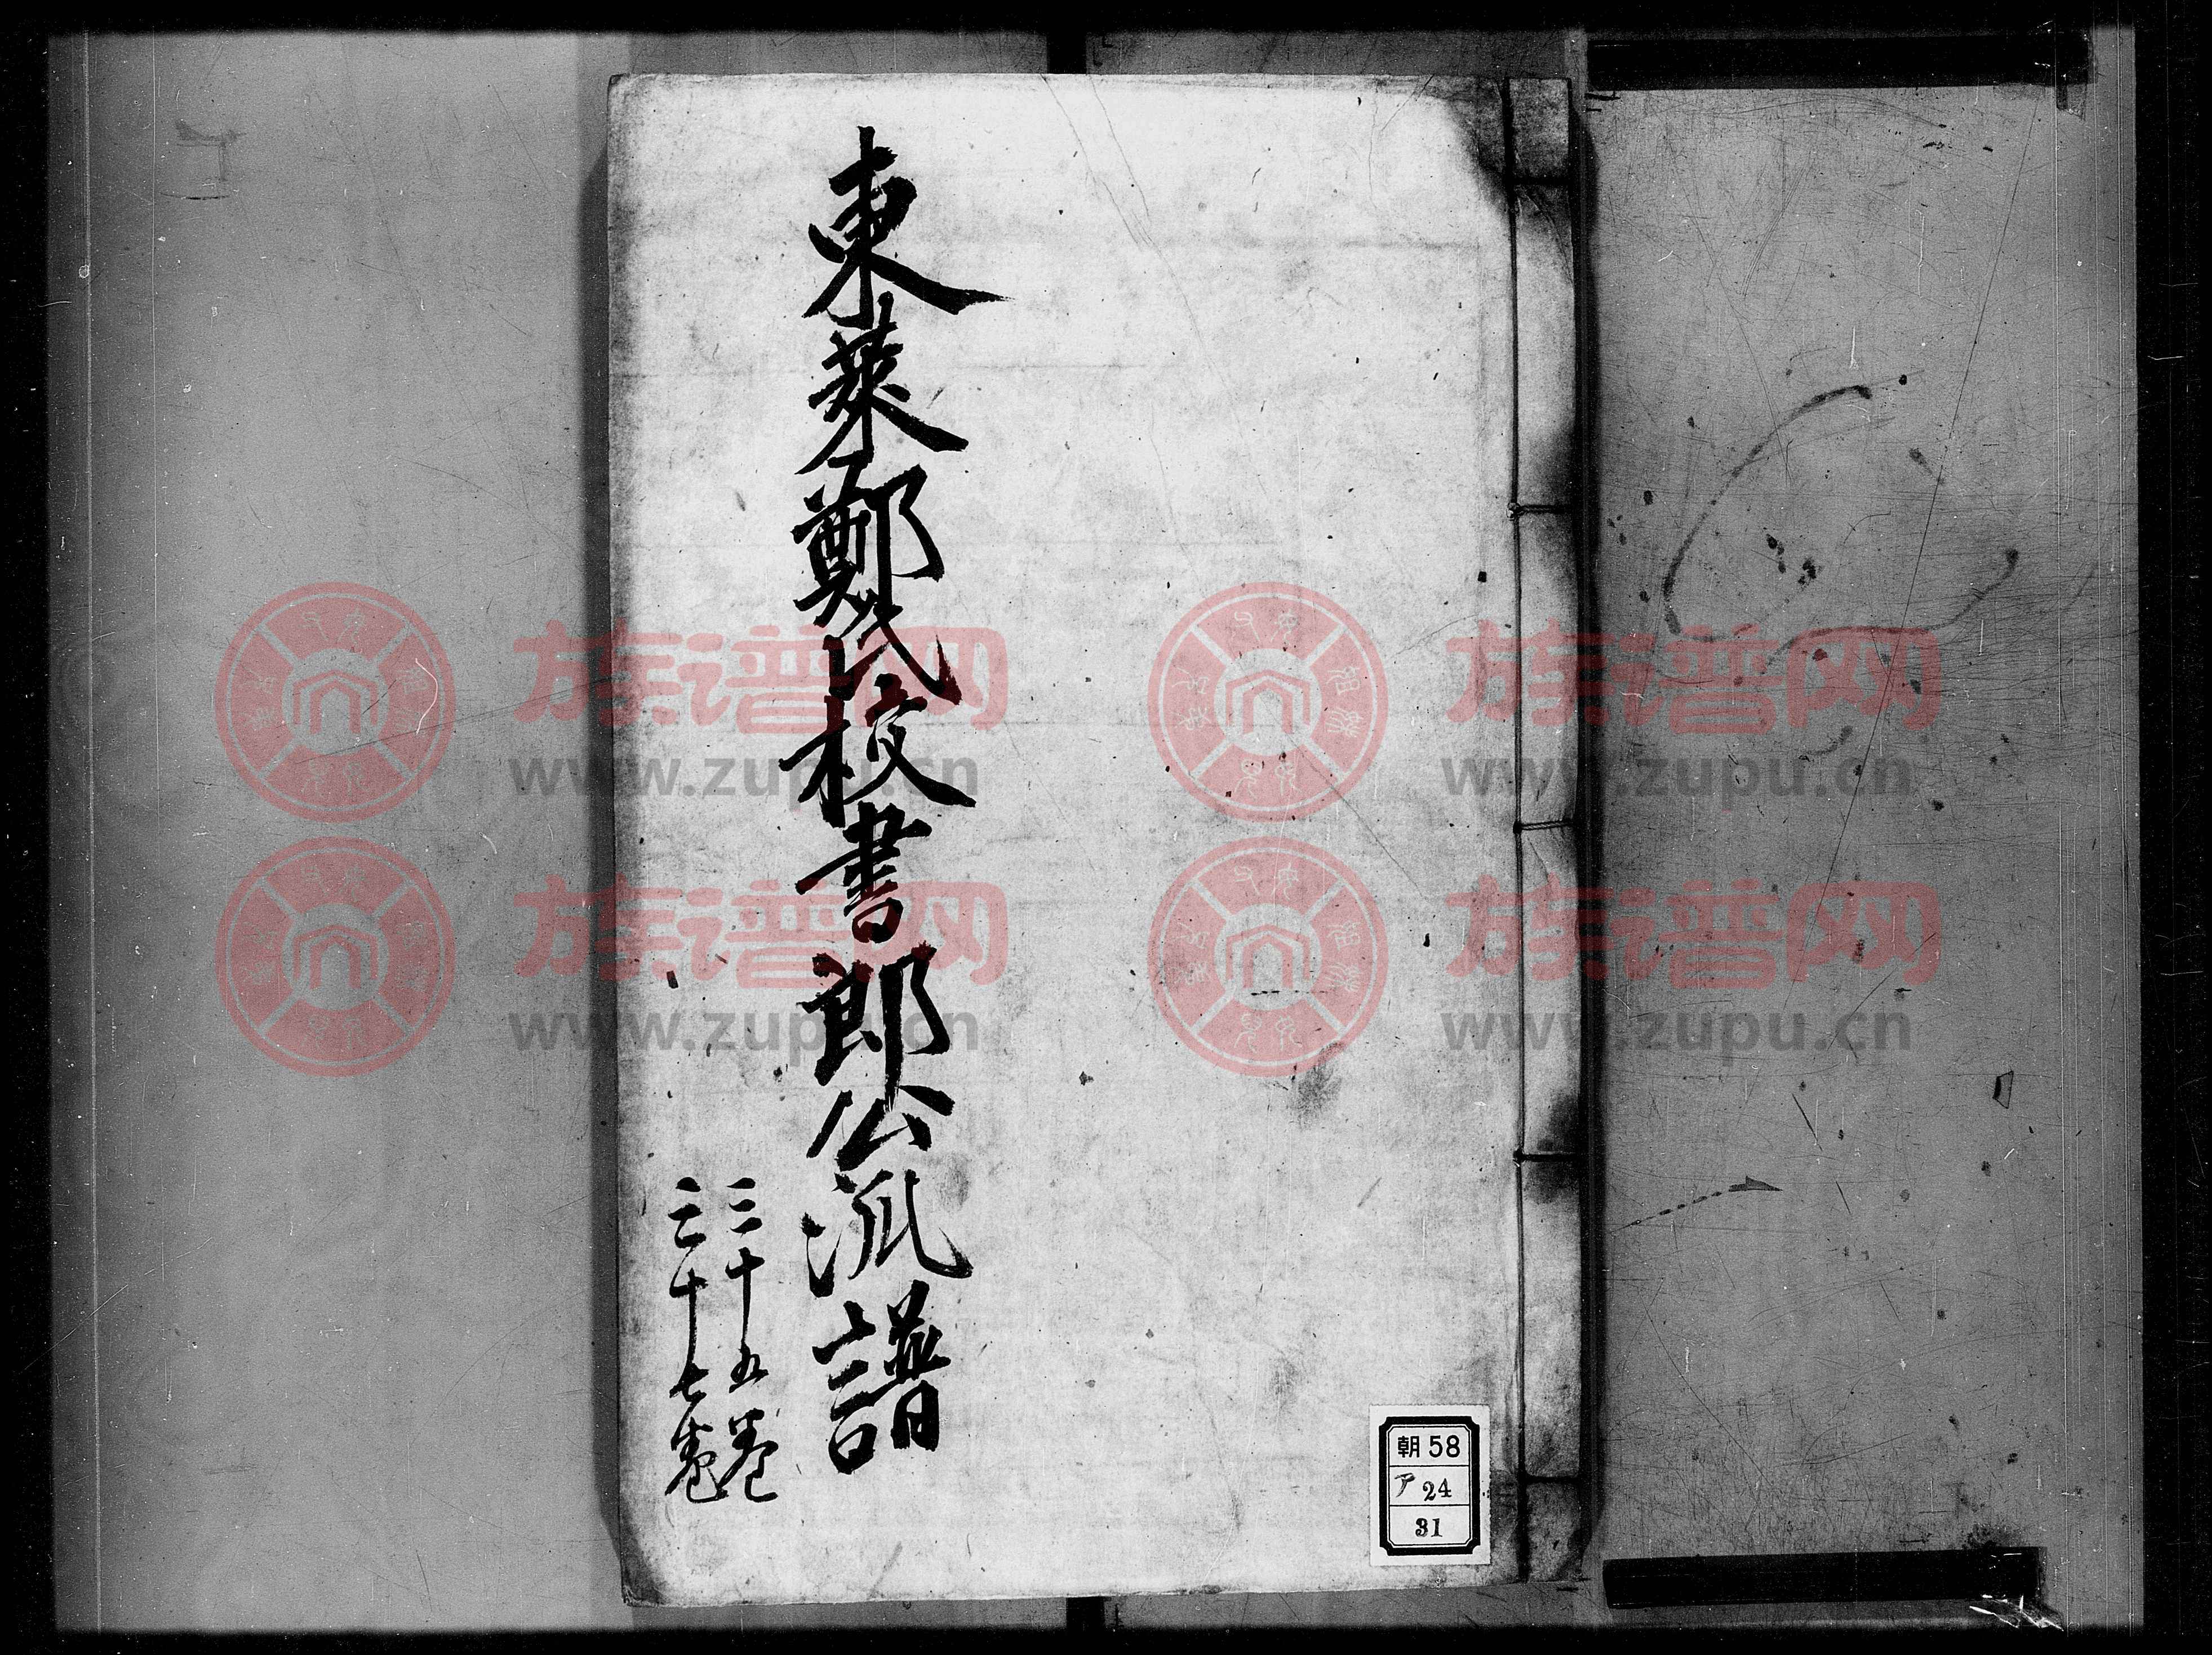 東萊鄭氏校書郎公派譜
三十五卷
三十七卷
朝 58
ア 24
31
族谱网
www.zupu.cn
族谱网
www.zupu.cn
族谱网
www.zupu.cn
族谱网
www.zupu.cn